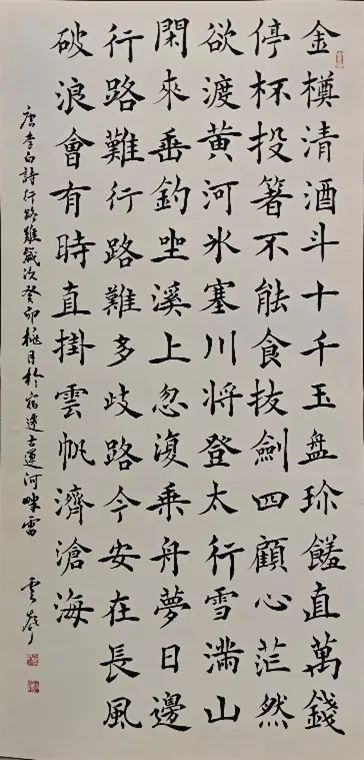 金樽清酒斗十千玉盤珎饈直萬錢
停杯投箸不能食拔劍四顧心茫然
欲渡黄河氷塞川将登太行雪滿山
閑來垂釣坐溪上忽復乘舟夢日邊
行路難行路難多歧路今安在長風
破浪會有時直掛雲帆濟滄海
唐李白詩行路難歲次癸卯月於宿遷古運河畔雷